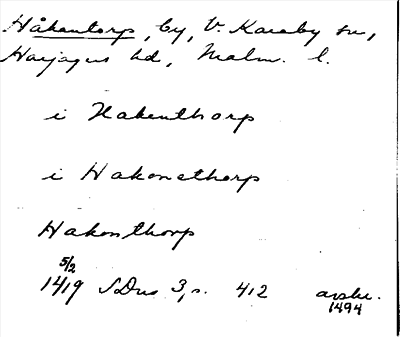 Håkantorp, by, V. Karaby sn,
Harjagers hd, Malm. l.
i Hakenthorp
i Hakonethorp
Hakonthorp
5/2
1419 SDns 3, s. 412 avskr.
1494